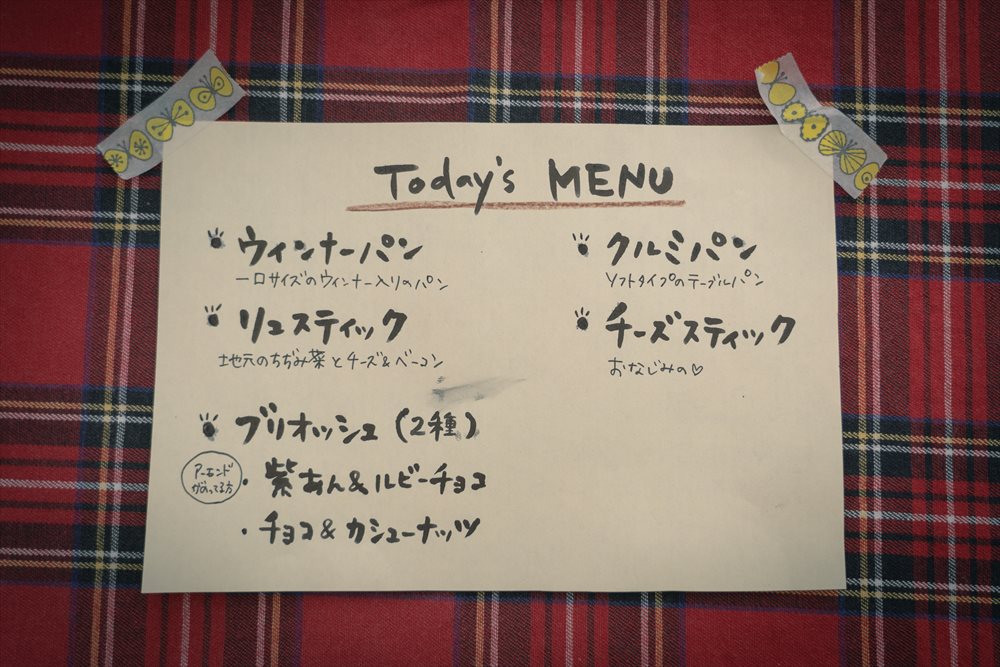 Today's MENU
ウィンナーパン
一口サイズのウィンナー入りのパン
リュスティック
地元のちぢみ菜とチーズ&ベーコン
ブリオッシュ(2種)
アーモンド
がのってる方
・紫あん&ルビーチョコ
・チョコ&カシューナッツ
クルミパン
ソフトタイプのテーブルパン
チーズスティック
おなじみの♡